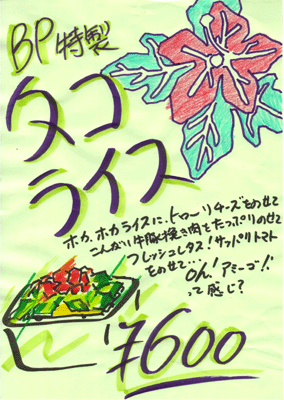 BP特製
タコ
ライス
ホカ、ホカライスに、トローリチーズをのせて
こんがり牛豚挽き肉をたっぷりのせて
フレッシュレタス!サッパリトマト
をのせて…
Oh!アミーゴ!!
って感じ?
¥600